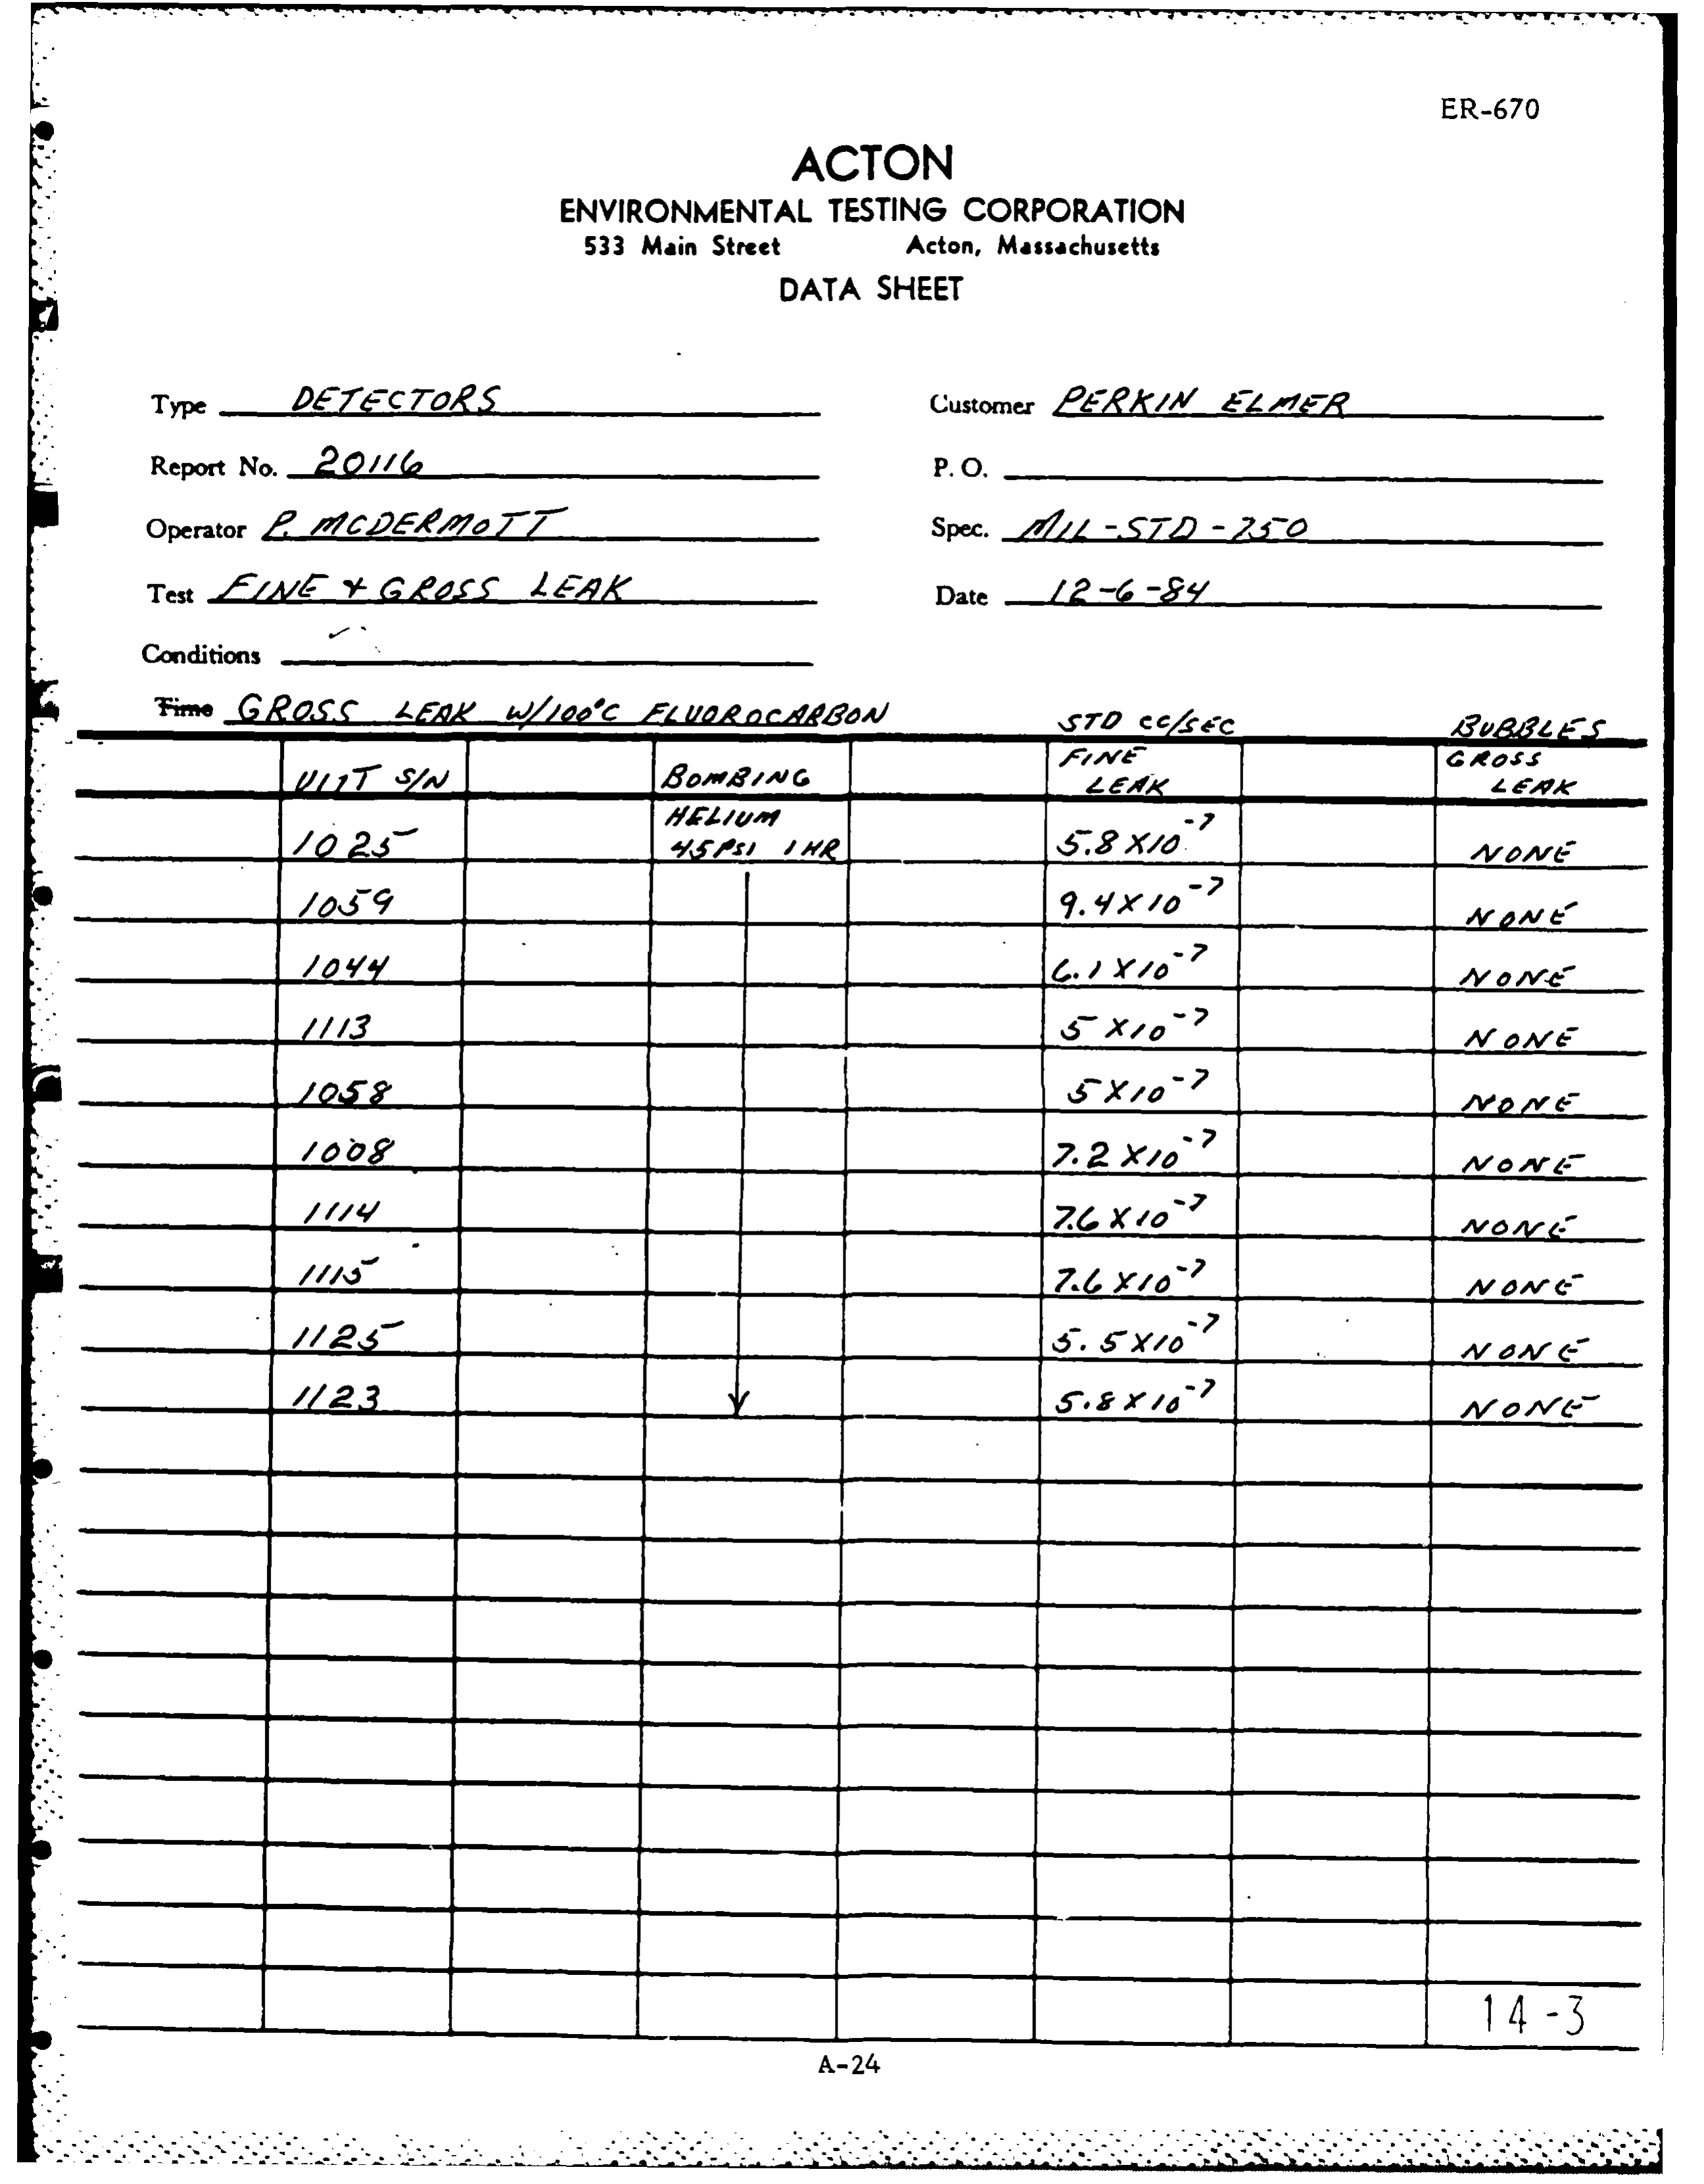 ER-670
ACTON
ENVIRONMENTAL TESTING CORPORATION
533 Main Street Acton, Massachusetts
DATA SHEET
Type DETECTORS Customer PERKIN ELMER
Report No. 20116 P. O.
Operator P. MCDERMOTT Spec. MIL-STD-750
Test FINE & GROSS LEAK Date 12-6-84
Conditions
Time GROSS LEAK W/100°C FLUOROCARBON STD CC/SEC BUBBLES
UNIT S/N BOMBING FINE LEAK GROSS LEAK
1025 HELIUM 45 PSI 1 HR 5.8 X10⁻⁷ NONE
1059 9.4 X 10⁻⁷ NONE
1044 6.1 X 10⁻⁷ NONE
1113 5 X10⁻⁷ NONE
1058 5 X10⁻⁷ NONE
1008 7.2 X10⁻⁷ NONE
1114 7.6 X10⁻⁷ NONE
1115 7.6 X10⁻⁷ NONE
1125 5.5 X10⁻⁷ NONE
1123 5.8 X10⁻⁷ NONE
14-3
A-24